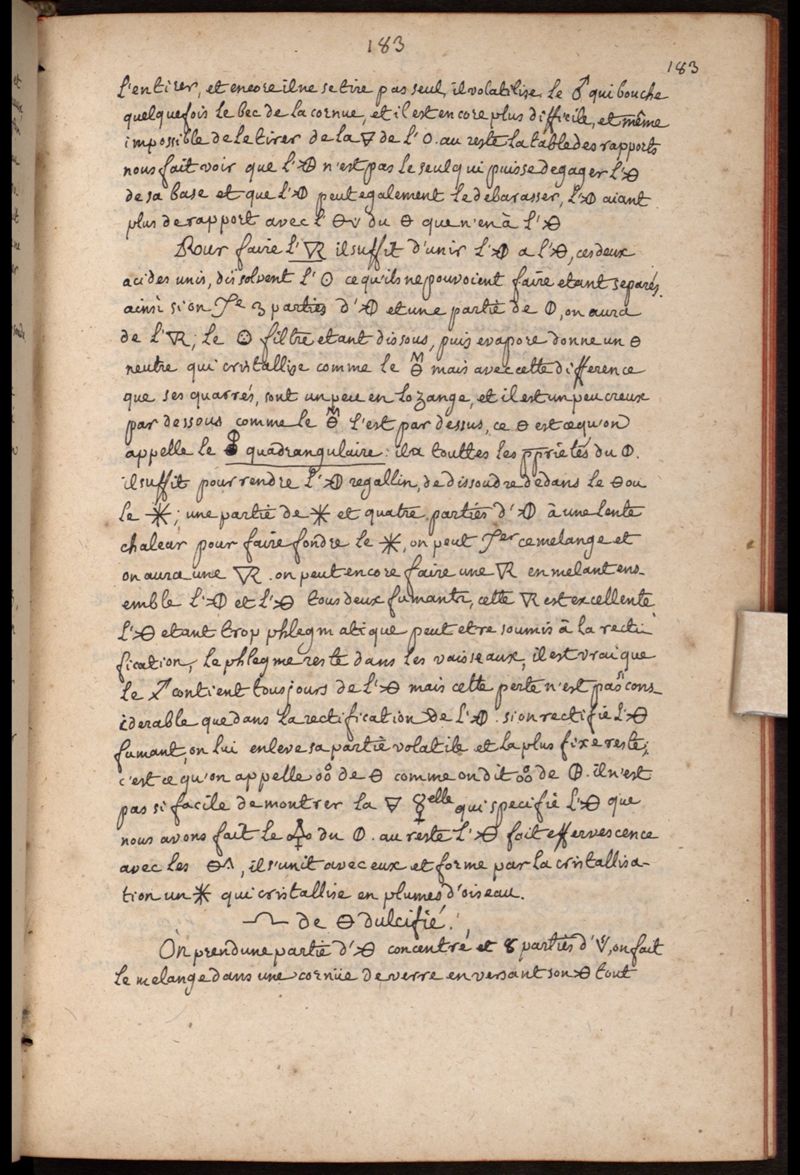 183
183
l'entirer, et encore il ne se tire pas seul, il volatilise le ♂ qui bouche
quelquefois le bec de la cornue, et il est encore plus difficile, et même
impossible de le tirer de la 🜃 de l'O. au reste la table des rapports
nous fait voir que l' n'est pas le seul qui puisse degager l'
de sa base et que l' peut egalement le debarasser, l' aiant
plus de rapport avec l' du 🜔 que n'en à l'
Pour faire l' il suffit d'unir l' a l', ces deux
acides unis, dissolvent l'☉ ce qu'ils ne pouvoient faire etant separés.
ainsi si on 3 parties d' et une partie de 🜕, on aura
de l'; le filtre etant dissous, puis evaporé donne un 🜔
neutre qui cristallise comme le mais avec cette difference
que ses quarrés, sont un peu en lozange, et il est un peu creux
par dessous comme le l'est par dessus, ce 🜔 est ce qu'on
appelle le quadrangulaire: il a touttes les pprietés du 🜕.
il suffit pour rendre l' regallin, de dissoudre dedans le 🜔 ou
le ✳; une partie de ✳ et quatre parties d' à une lente
chaleur pour faire fondre le ✳, on peut ce melange et
on aura une . on peut encore faire une en melant ens-
emble l' et l' tous deux fumants, cette est excellente
l' etant trop phlegmatique peut etre soumis à la recti
fication, le phlegme reste dans les vaisseaux, il est vrai que
le contient tousjours de l' mais cette perte n'est pas si cons-
iderable que dans la rectification de l'. si on rectifie l'
fumant, on lui enleve sa partie volatile et la plus fixe reste;
c'est ce qu'on appelle de 🜔 comme on dit de 🜕. il n'est
pas si facile de montrer la qui specifie l' que
nous avons fait le du 🜕. au reste l' fait effervescence
avec les , il s'unit avec eux et forme par la cristallisa-
tion un ✳ qui cristallise en plumes d'oiseau.
de 🜔 dulcifié.
On prend une partie d' concentré et 8 parties d', on fait
le melange dans une cornüe de verre en versant son tout